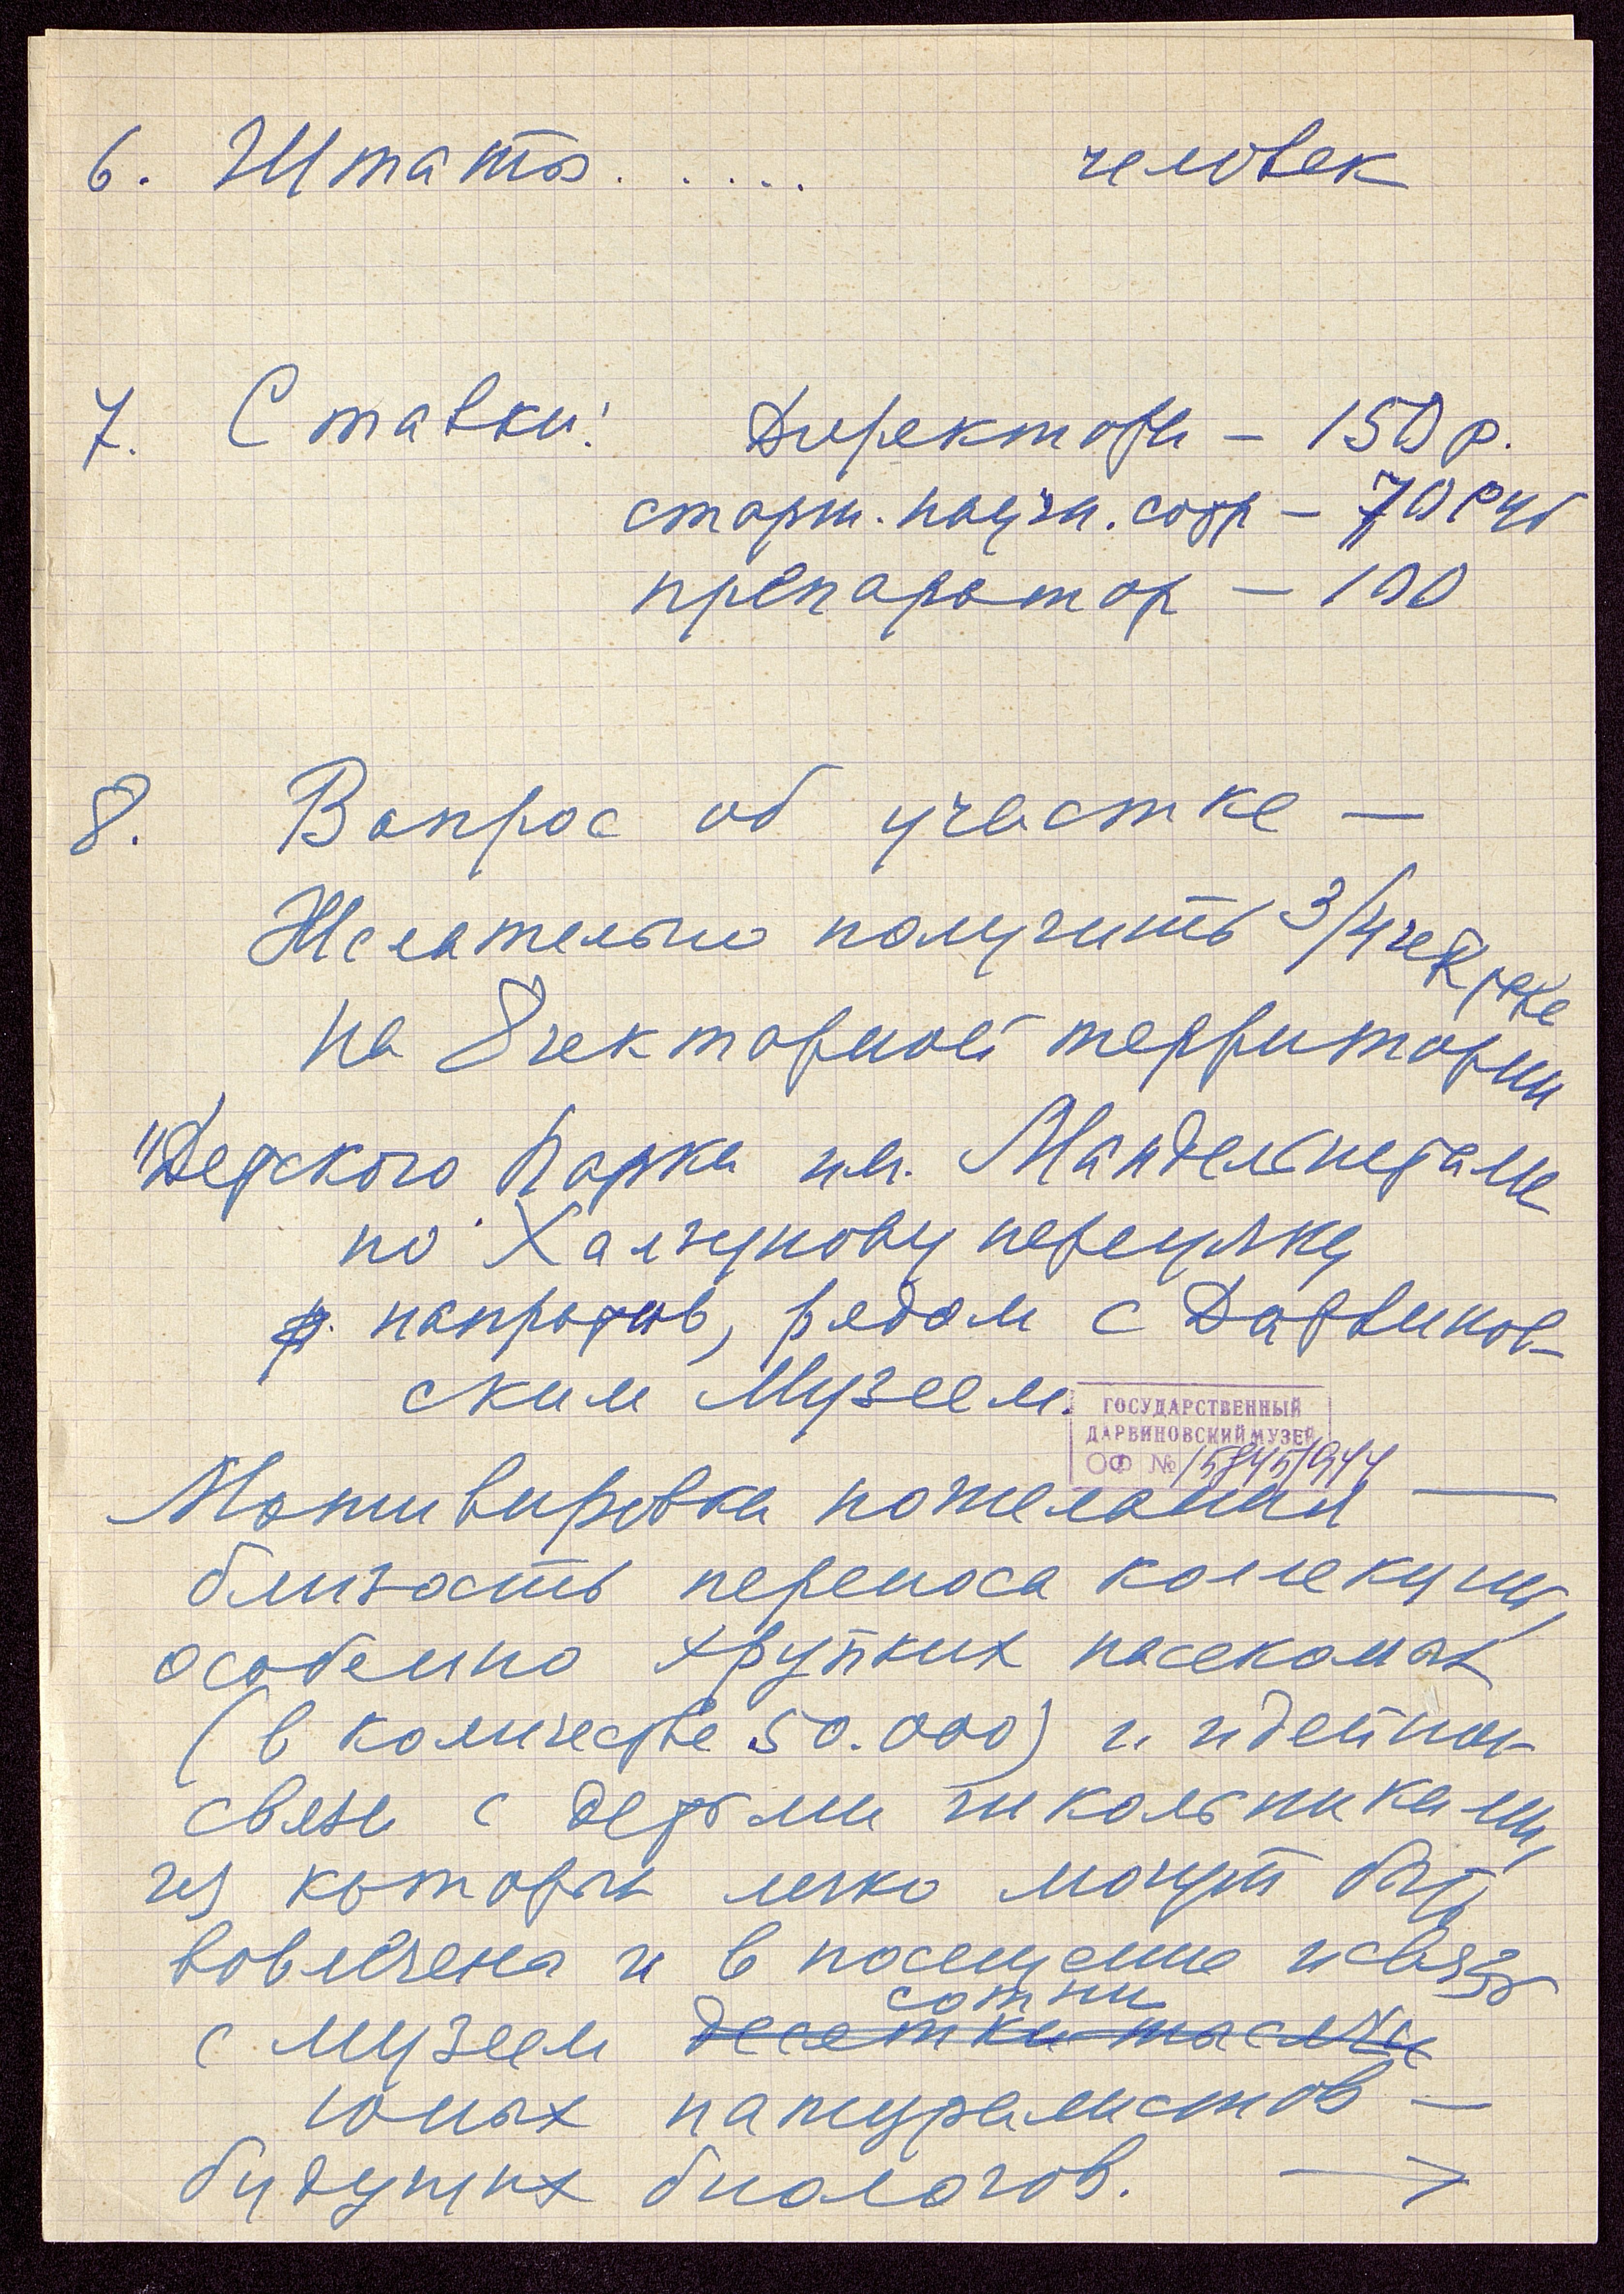 6. Штаты ..... человек
7. Ставки: Директора – 150 р.
старш. научн. сотр – 70 руб
препаратор – 100
8. Вопрос об участке —
Желательно получить 3/4 гектара
на 8 гектарной территории
"Детского парка им. Мандельштама
по Халзунову переулку
напротив, рядом с Дарвинов-
ским Музеем.
ГОСУДАРСТВЕННЫЙ
ДАРВИНОВСКИЙ МУЗЕЙ
ОФ № 15845/944
Мотивировка пожелания —
близость переноса коллекции,
особенно хрупких насекомых
(в количестве 50.000) и идейной
связи с детьми школьниками,
из которых легко могут быть
вовлечены и в посещение и связь
сотни
с музеем десятки тысячи
юных натуралистов —
будущих биологов. →